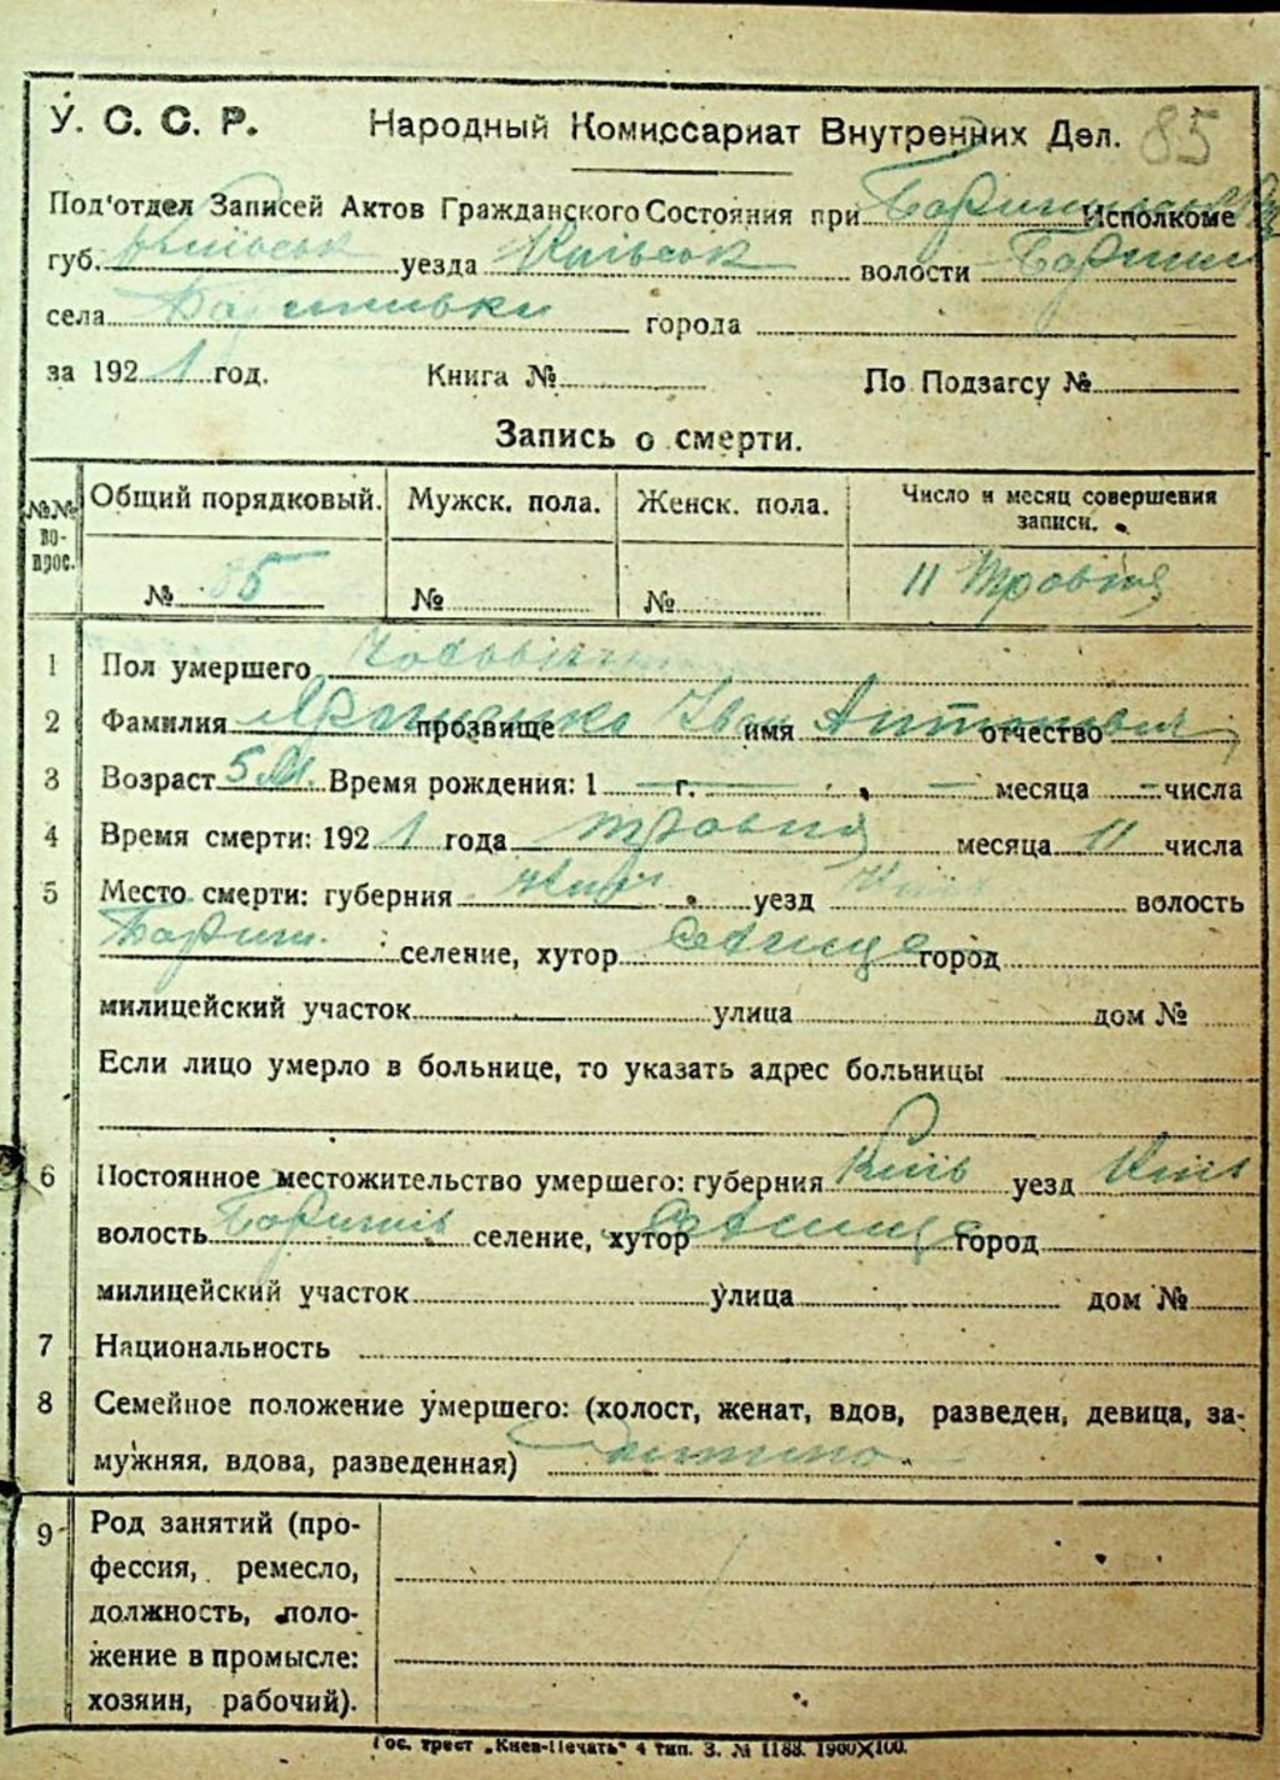 У. С. С. Р. Народный Комиссариат Внутренних Дел. 85
Под'отдел Записей Актов Гражданского Состояния при Исполкоме
губ. Київськ уезда Київськ волости Баришп
села города
за 1921 год. Книга № По Подзагсу №
Запись о смерти.
№№ во-прос. Общий порядковый. Мужск. пола. Женск. пола. Число и месяц совершения записи.
№ 85 № № 11 Травня
1 Пол умершего
2 Фамилия прозвище Іван имя Антонович отчество
3 Возраст 5 М. Время рождения: 1 — г. — месяца — числа
4 Время смерти: 1921 года травня месяца 11 числа
5 Место смерти: губерния Київ уезд Київ волость
Баришп. селение, хутор Селище город
милицейский участок улица дом №
Если лицо умерло в больнице, то указать адрес больницы
6 Постоянное местожительство умершего: губерния Київ уезд Київ
волость селение, хутор Селище город
милицейский участок улица дом №
7 Национальность
8 Семейное положение умершего: (холост, женат, вдов, разведен, девица, за-
мужняя, вдова, разведенная) Дитина
9 Род занятий (про-
фессия, ремесло,
должность, поло-
жение в промысле:
хозяин, рабочий).
Гос. трест „Киев-Печать" 4 тип. З. № 1188. 1900X100.